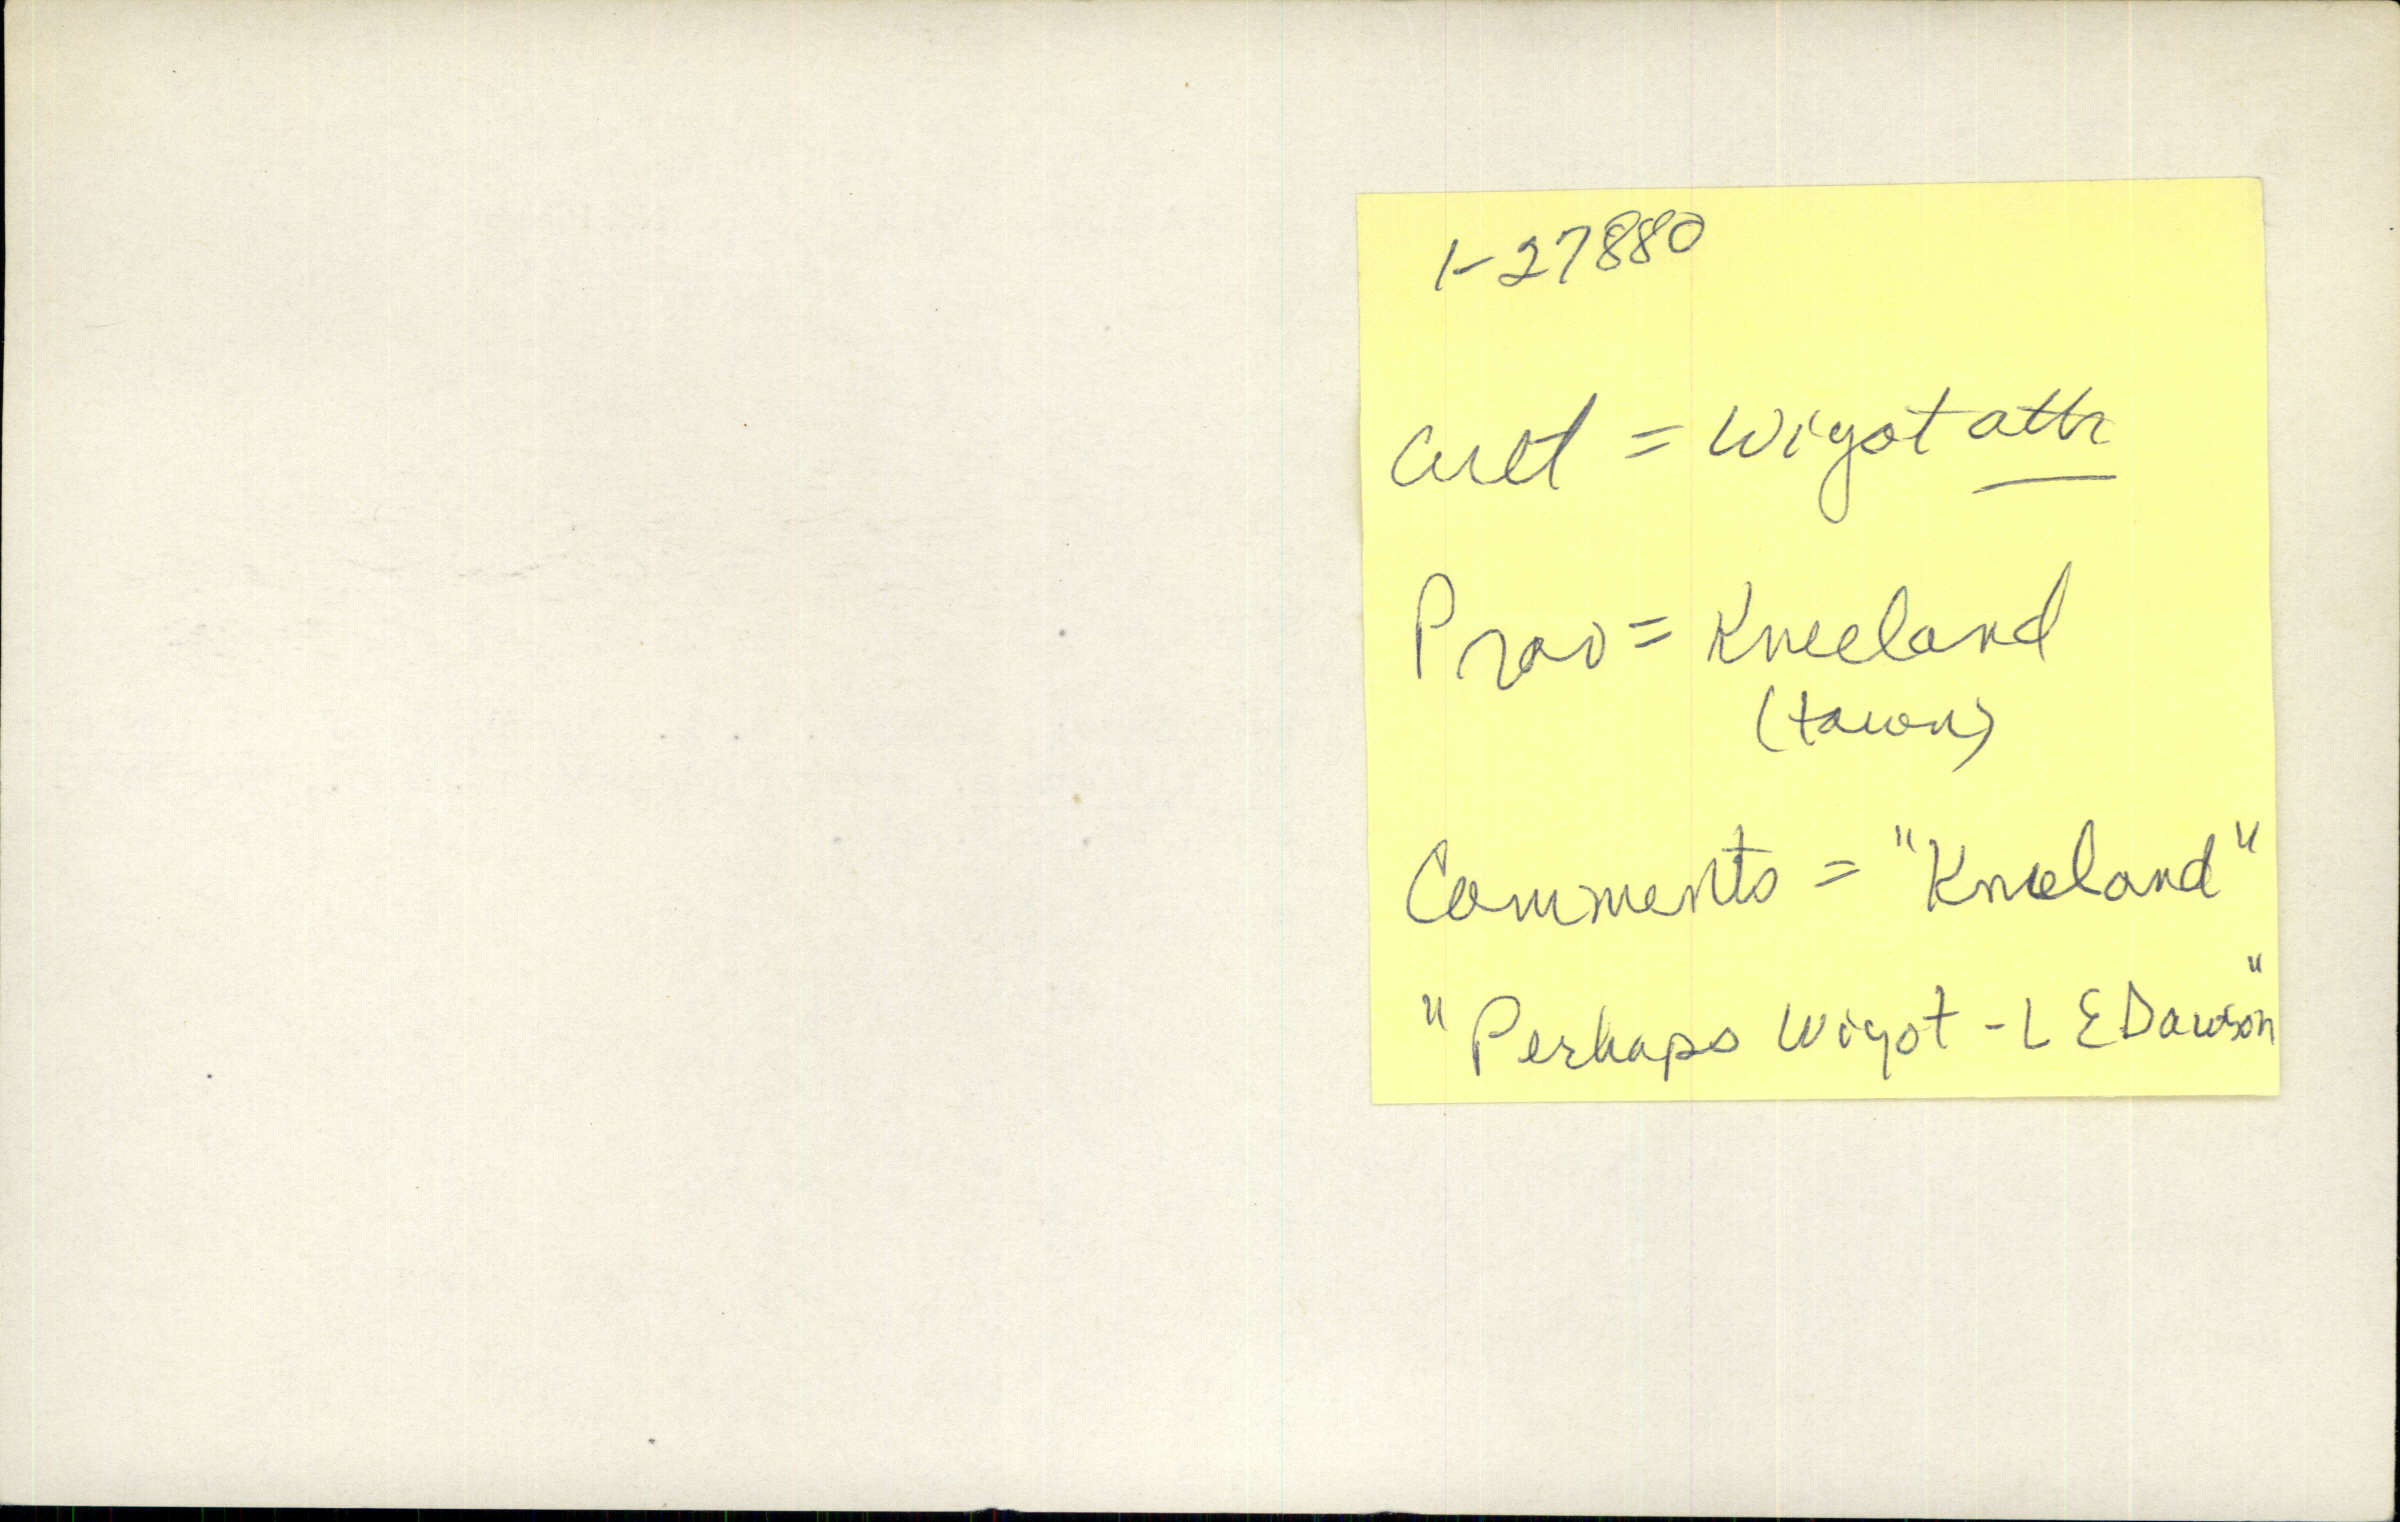 1-27880
Cult = Wiyot attr
Prov = Kneeland
(town)
Comments = "Kneeland"
"Perhaps Wiyot - L E Dawson"